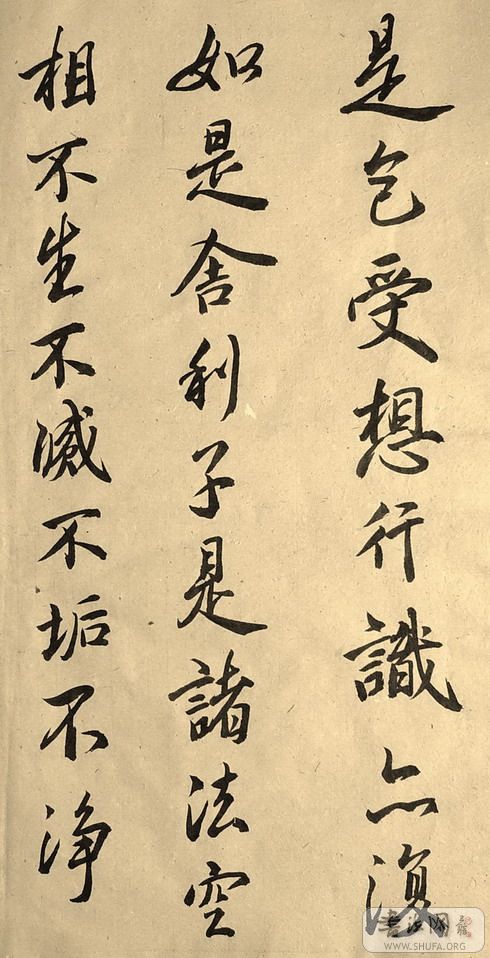 是色受想行識亦復
如是舍利子是諸法空
相不生不滅不垢不淨
書法网
WWW.SHUFA.ORG